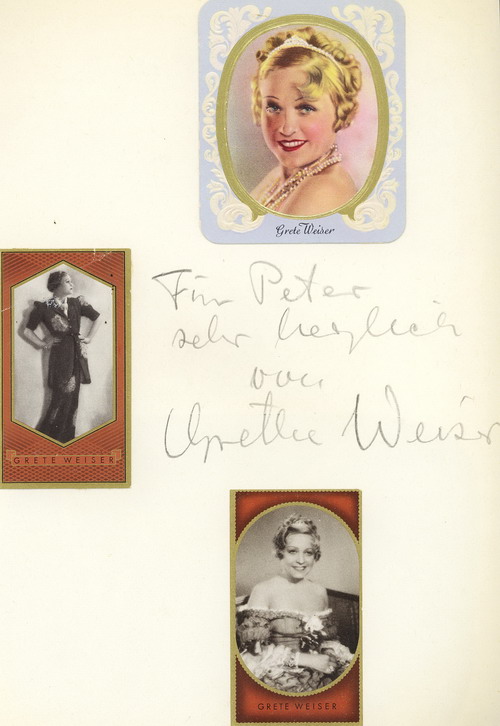 Grete Weiser
Für Peter
sehr herzlich
von
Grethe Weiser
GRETE WEISER
GRETE WEISER